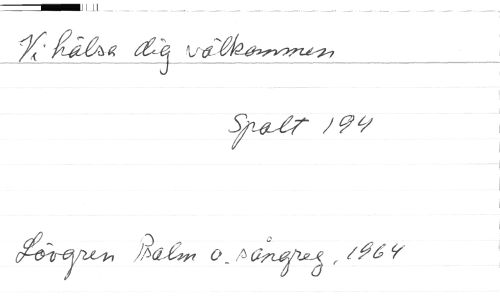 Vi hälsa dig välkommen
Spalt 194
Lövgren Psalm o. sångreg. 1964